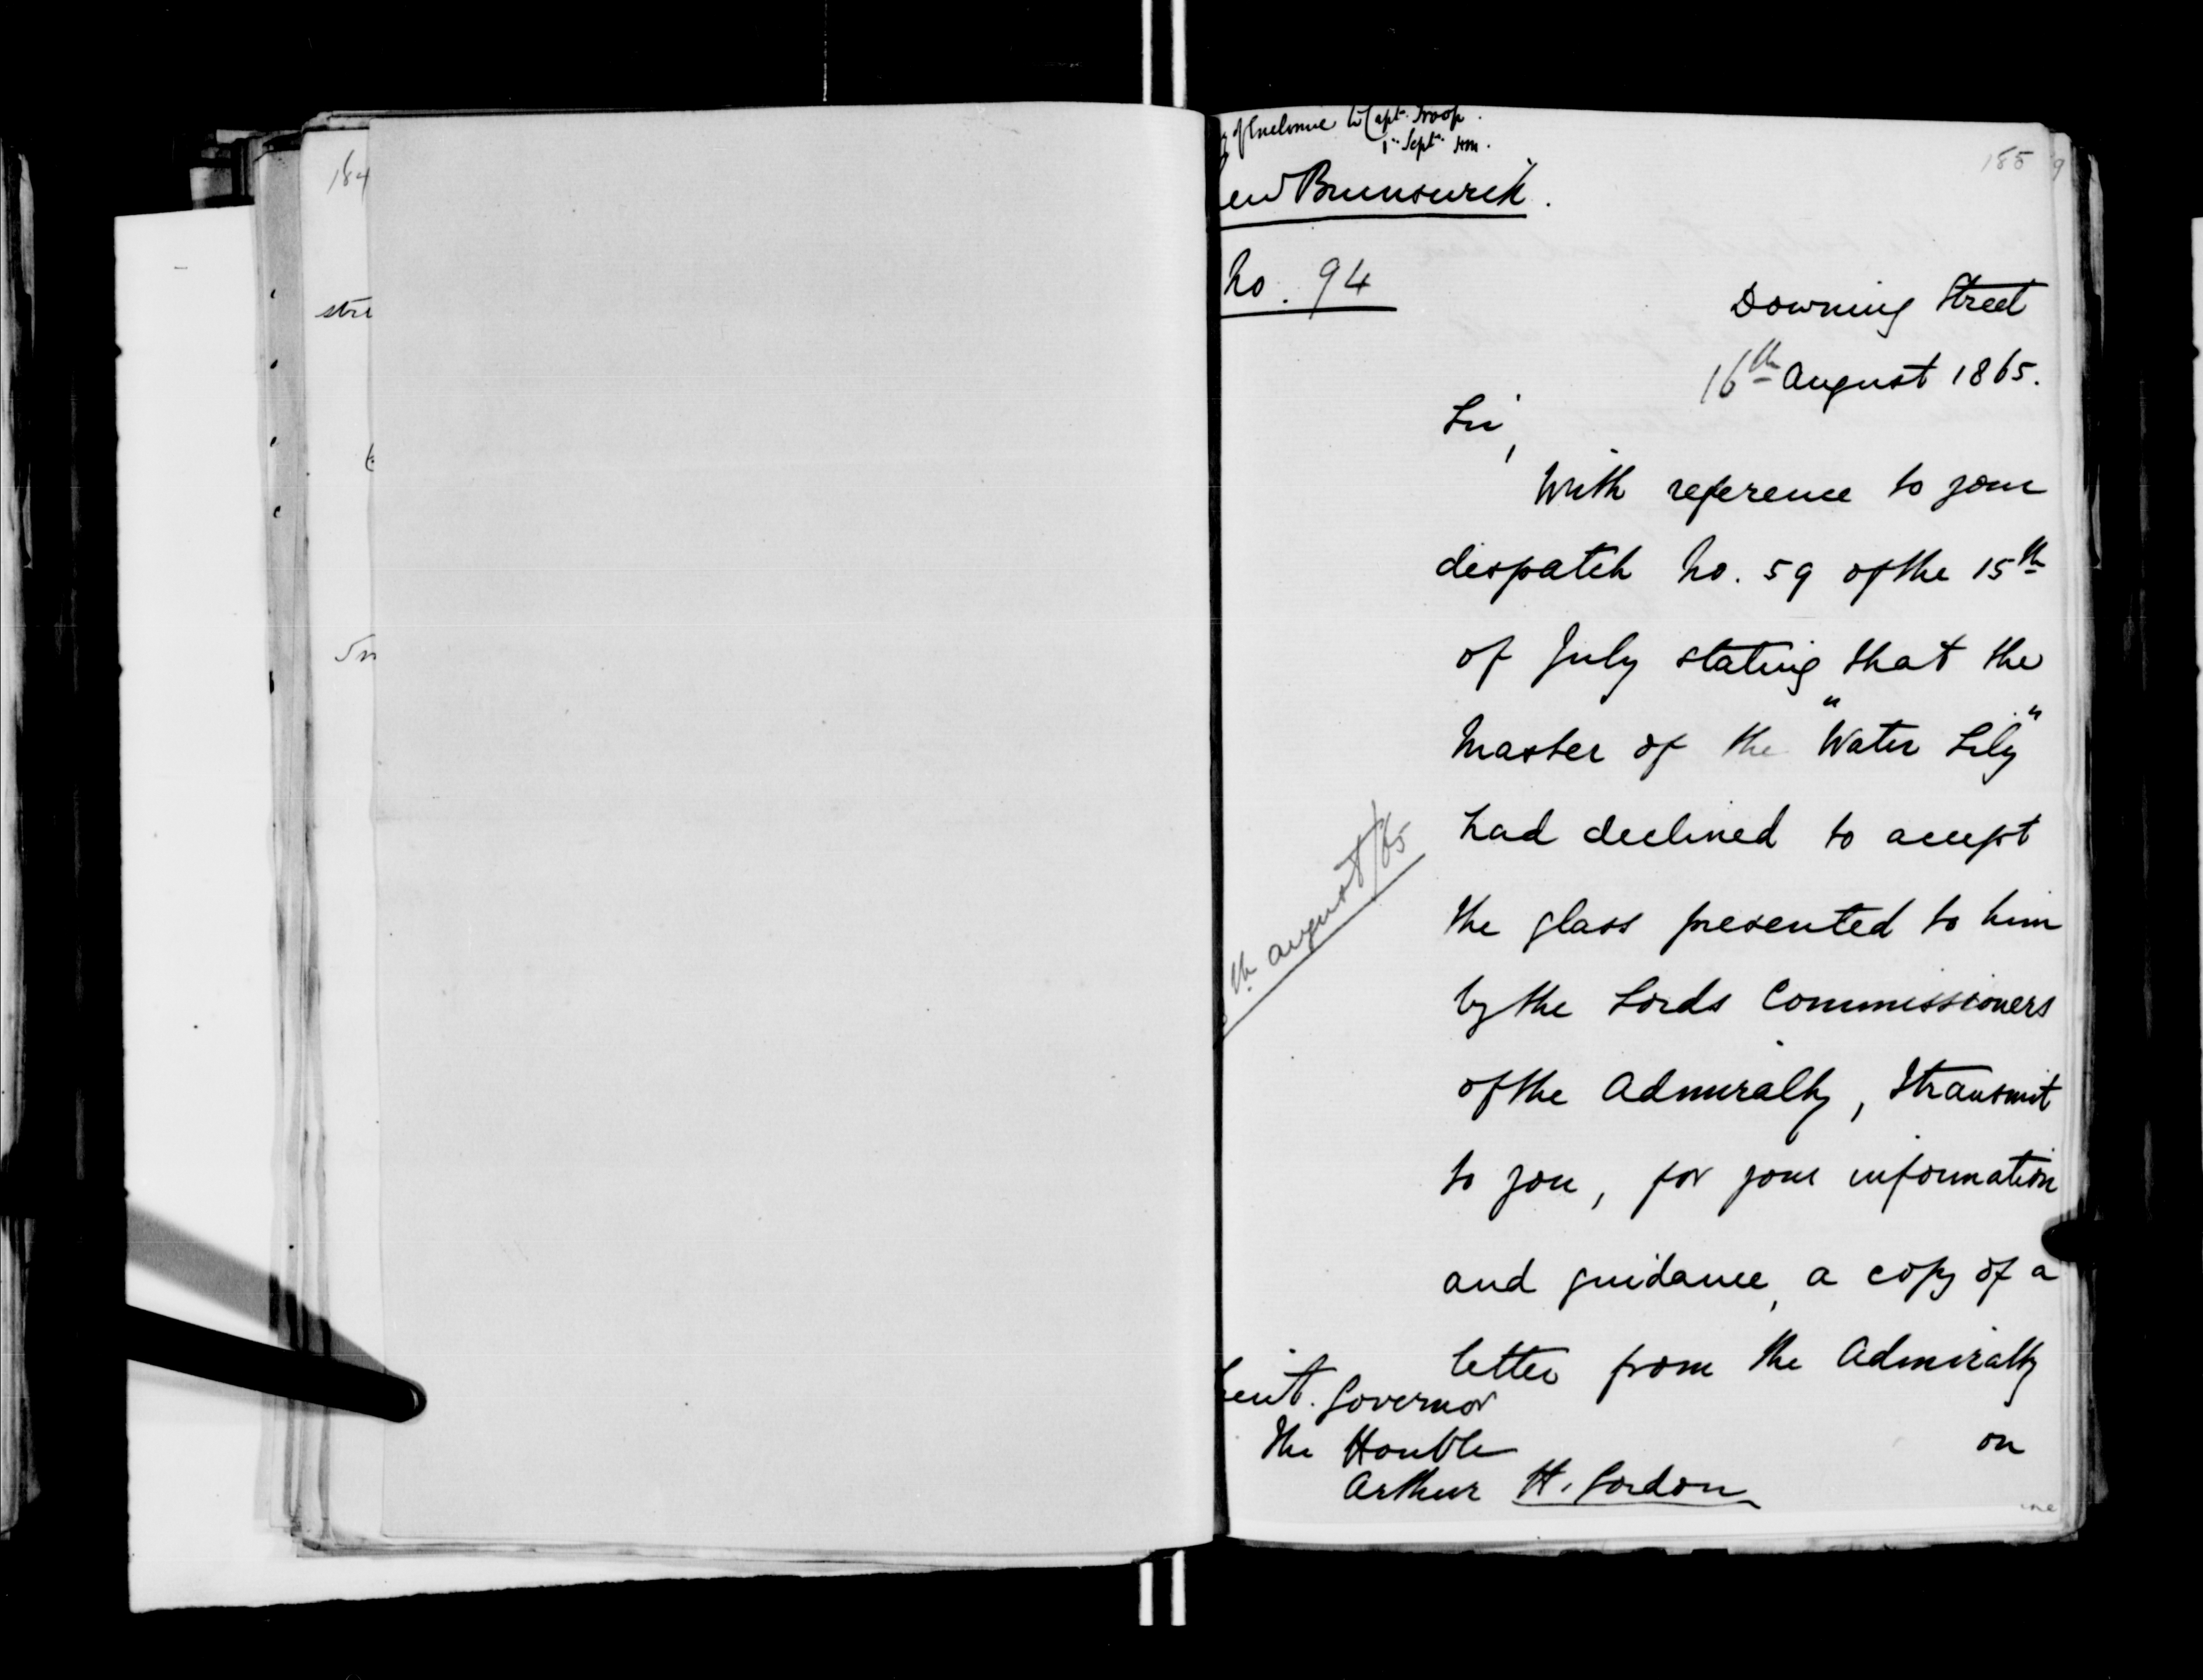 184
stri
of Enclosure to Capt. Troop.
1st Sept.
ew Brunswick.
185
No. 94
Downing Street
16th August 1865.
Sir,
With reference to your
despatch No. 59 of the 15th
of July stating that the
Master of the "Water Lily"
had declined to accept
the glass presented to him
by the Lords Commissioners
of the Admiralty, I transmit
to you, for your information
and guidance, a copy of a
letter from the Admiralty
on
th August/65
ieut. Governor
The Honble
Arthur H. Gordon